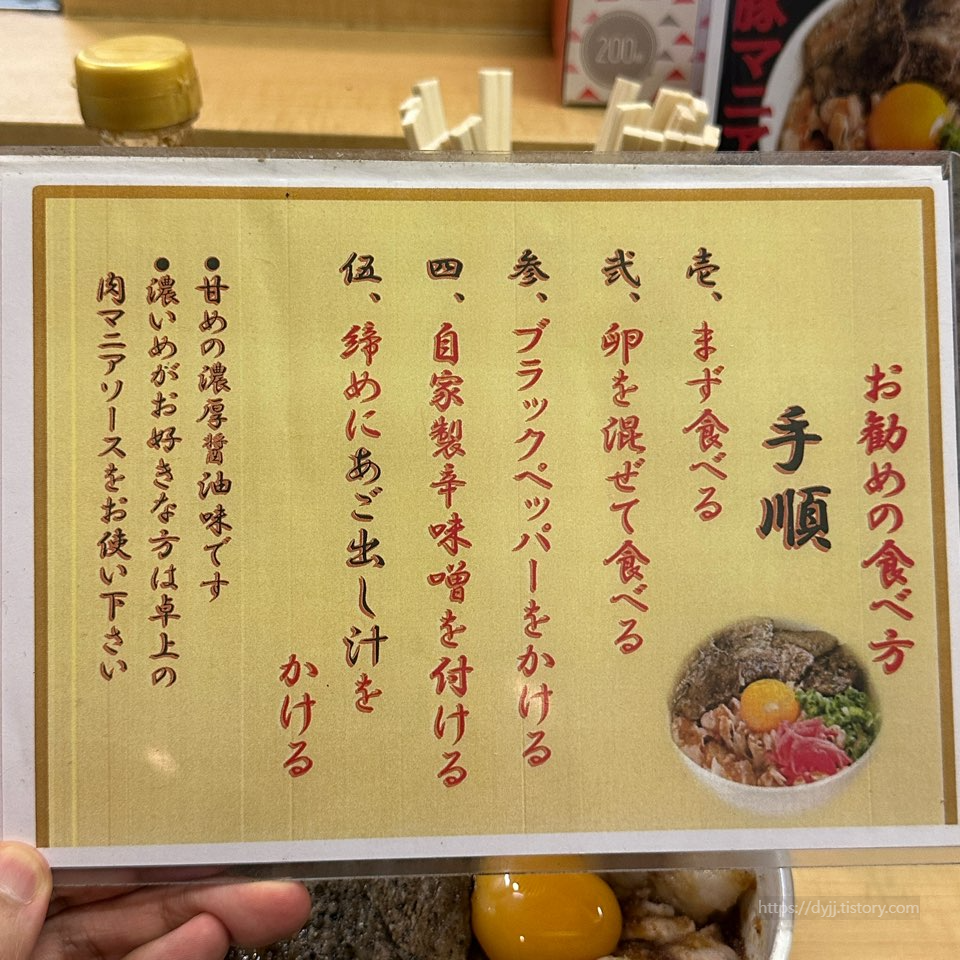 お勧めの食べ方
手順
壱、まず食べる
弐、卵を混ぜて食べる
参、ブラックペッパーをかける
四、自家製辛味噌を付ける
伍、締めにあご出し汁を
かける
●甘めの濃厚醤油味です
●濃いめがお好きな方は卓上の
肉マニアソースをお使い下さい
200
豚マニア
https://dyjj.tistory.com